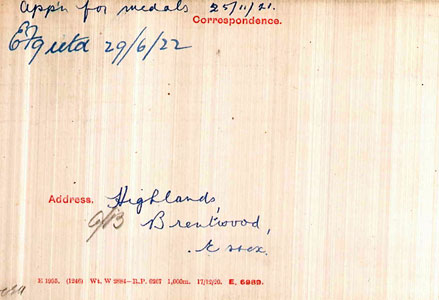 appn for medals 25/11/21.
Correspondence.
29/6/22
Address. Highlands,
Brentwood,
Essex.
E 1955. (1246) Wt. W 2884—R.P. 6267 1,000m. 17/12/20. E. 6983.